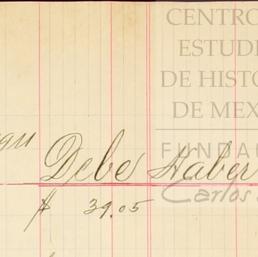 CENTRO
ESTUDI
DE HISTO
DE MEX
FUNDA
Carlos
Debe Haber
$ 39.05